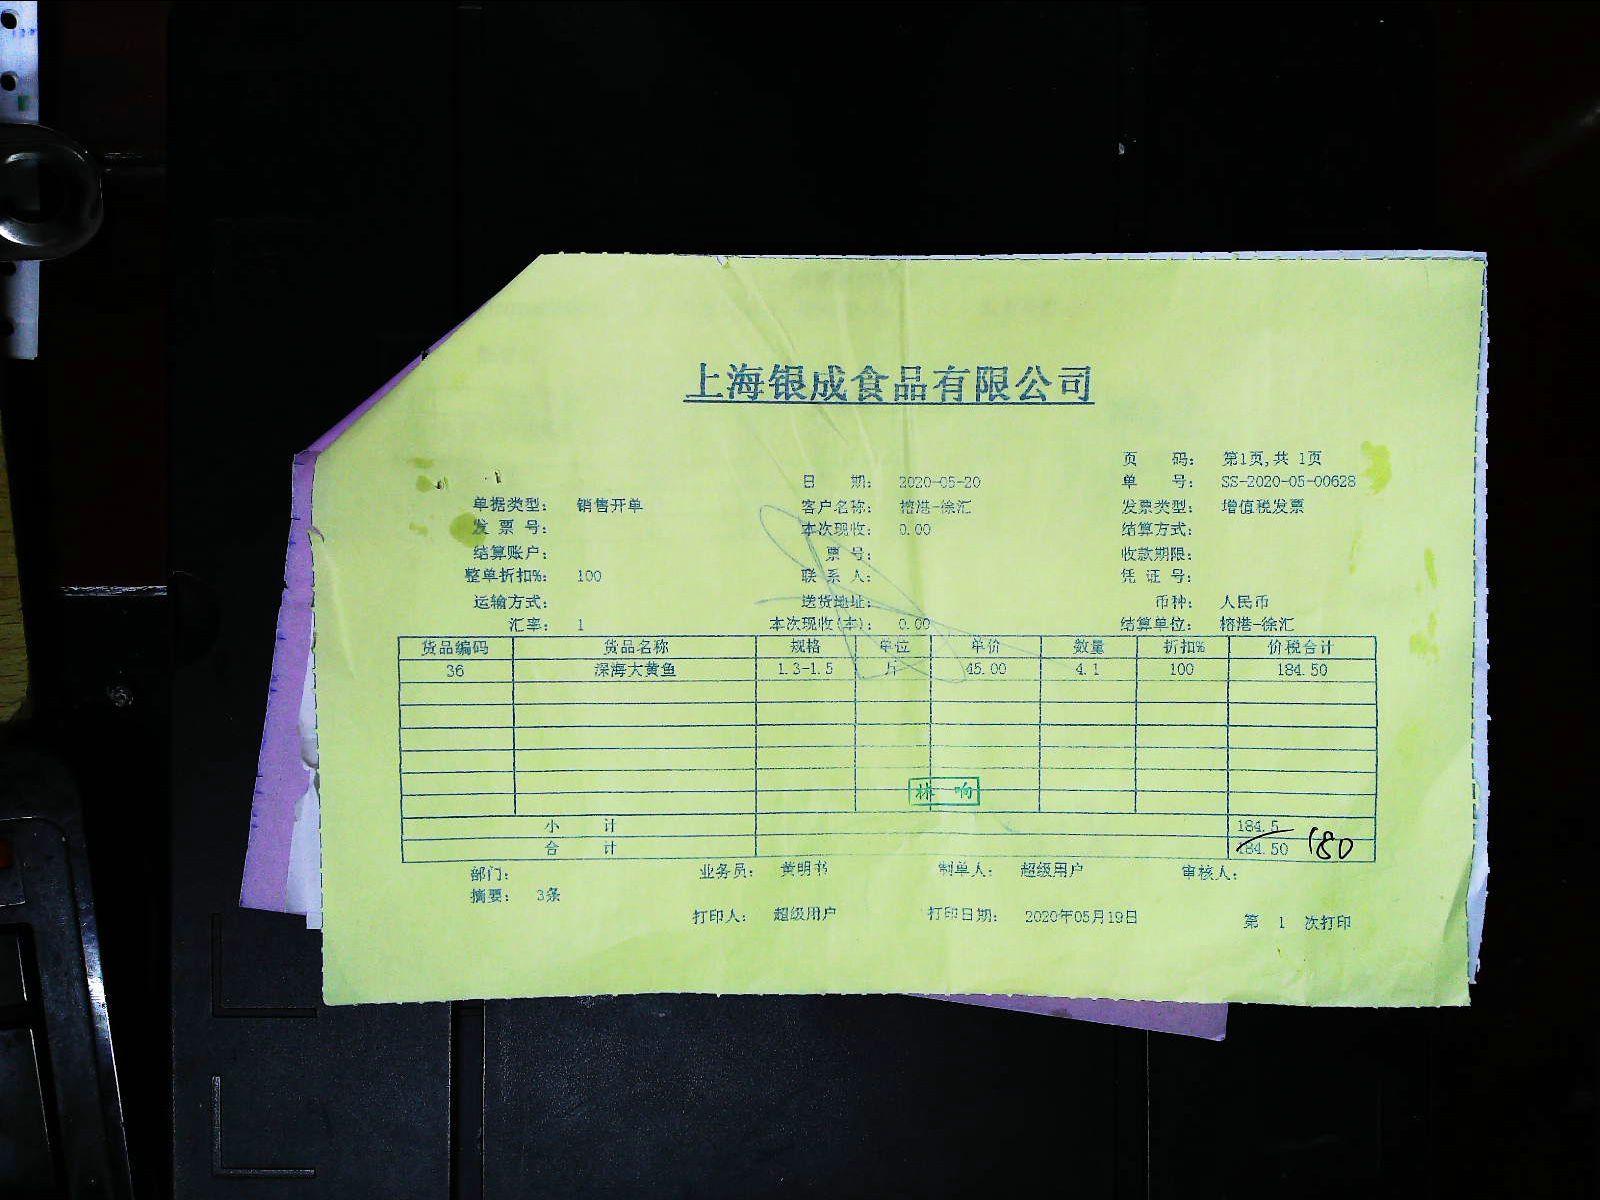 上海银成食品有限公司
页 码： 第1页,共 1页
日 期： 2020-05-20 单 号： SS-2020-05-00628
单据类型： 销售开单 客户名称： 榕港-徐汇 发票类型： 增值税发票
发 票 号： 本次现收： 0.00 结算方式：
结算账户： 票 号： 收款期限：
整单折扣%： 100 联 系 人： 凭 证 号：
运输方式： 送货地址： 币种： 人民币
汇率： 1 本次现收(本)： 0.00 结算单位： 榕港-徐汇
货品编码 货品名称 规格 单位 单价 数量 折扣% 价税合计
36 深海大黄鱼 1.3-1.5 斤 45.00 4.1 100 184.50
林 响
小 计 184.5
合 计 184.50 180
部门： 业务员： 黄明书 制单人： 超级用户 审核人：
摘要： 3条
打印人： 超级用户 打印日期： 2020年05月19日 第 1 次打印